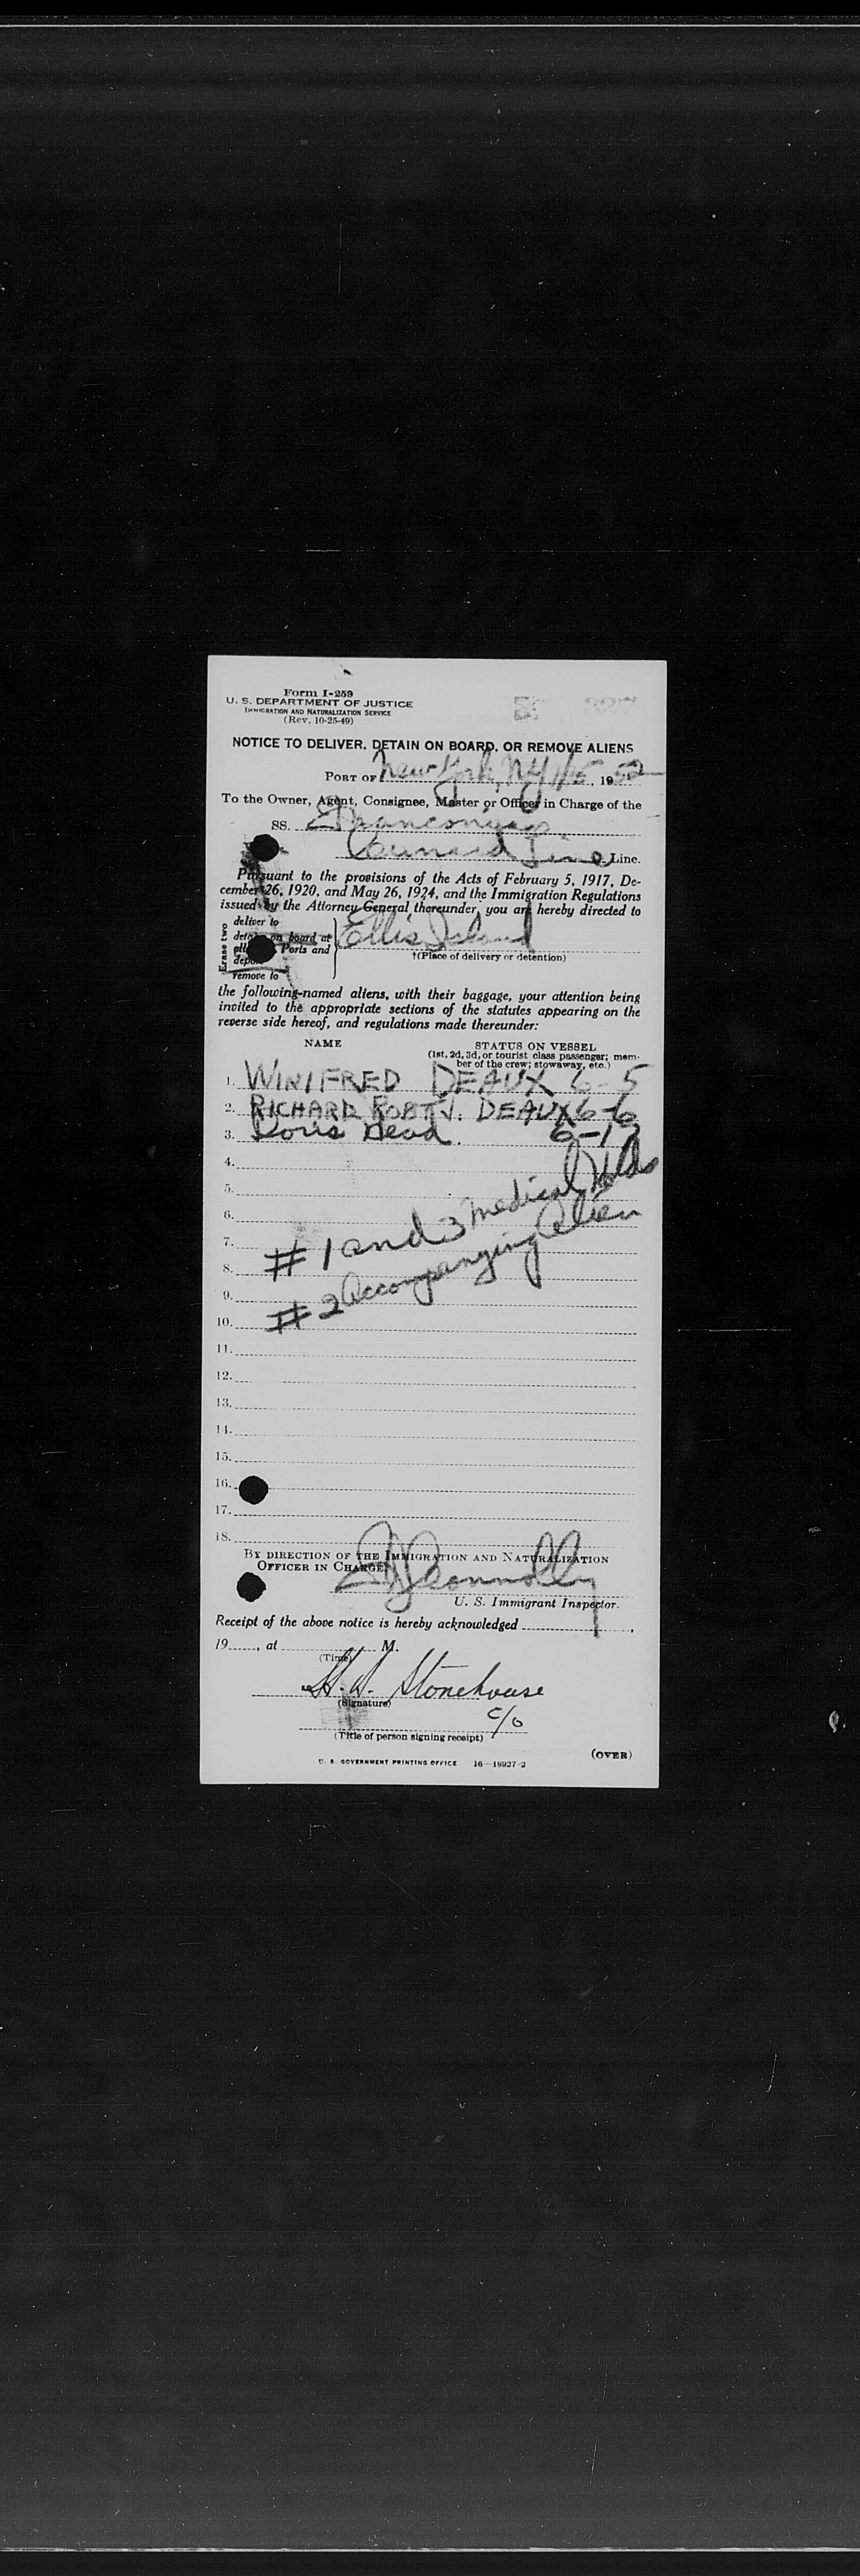 Form I-259
U. S. DEPARTMENT OF JUSTICE
IMMIGRATION AND NATURALIZATION SERVICE
(Rev. 10-25-49)
NOTICE TO DELIVER, DETAIN ON BOARD, OR REMOVE ALIENS
PORT OF New York, NY 1/15, 1952
To the Owner, Agent, Consignee, Master or Officer in Charge of the
SS. Franconia
Cunard Line Line.
Pursuant to the provisions of the Acts of February 5, 1917, De-
cember 26, 1920, and May 26, 1924, and the Immigration Regulations
issued by the Attorney General thereunder, you are hereby directed to
Erase two
deliver to
detain on board at
all Ports and
remove to
Ellis Island
†(Place of delivery or detention)
the following-named aliens, with their baggage, your attention being
invited to the appropriate sections of the statutes appearing on the
reverse side hereof, and regulations made thereunder:
NAME STATUS ON VESSEL
(1st, 2d, 3d, or tourist class passenger; mem-
ber of the crew; stowaway, etc.)
1. WINIFRED DEAUX 6-5
2. RICHARD ROBT J. DEAUX 6-6
3. Doris Dead.
4.
5.
6.
7. #1 and 3 medical Holds
8.
9. #2 Accompanying alien
10.
11.
12.
13.
14.
15.
16.
17.
18.
BY DIRECTION OF THE IMMIGRATION AND NATURALIZATION
OFFICER IN CHARGE:
Connolly
U. S. Immigrant Inspector.
Receipt of the above notice is hereby acknowledged
19 , at M.
(Time)
Stonehouse
(Signature)
C/O
(Title of person signing receipt)
(OVER)
U. S. GOVERNMENT PRINTING OFFICE 16—18927-2